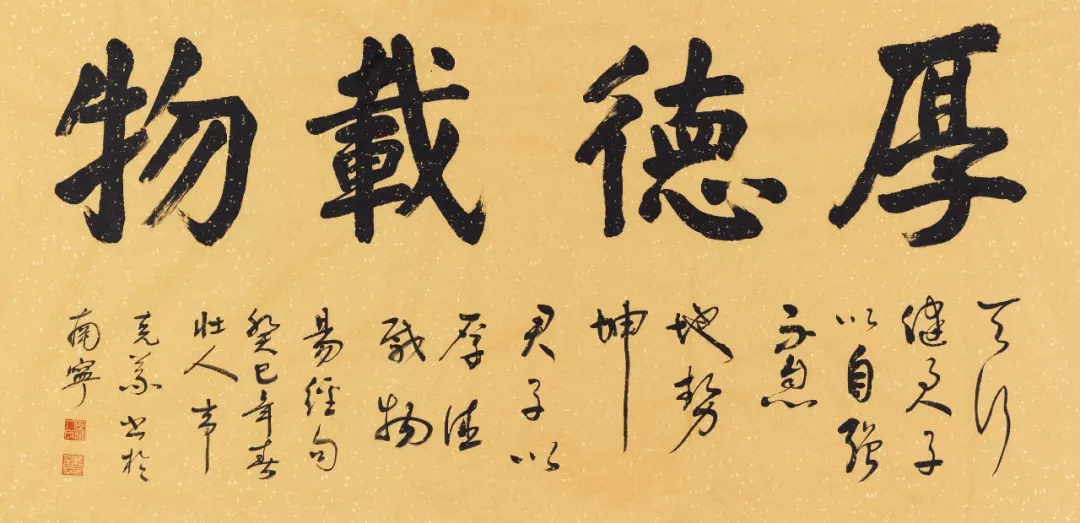 厚德載物
天行
健君子
以自强
不息
地勢
坤
君子以
厚德
載物
易經句
癸巳年春
壮人韦
克義书於
南寧